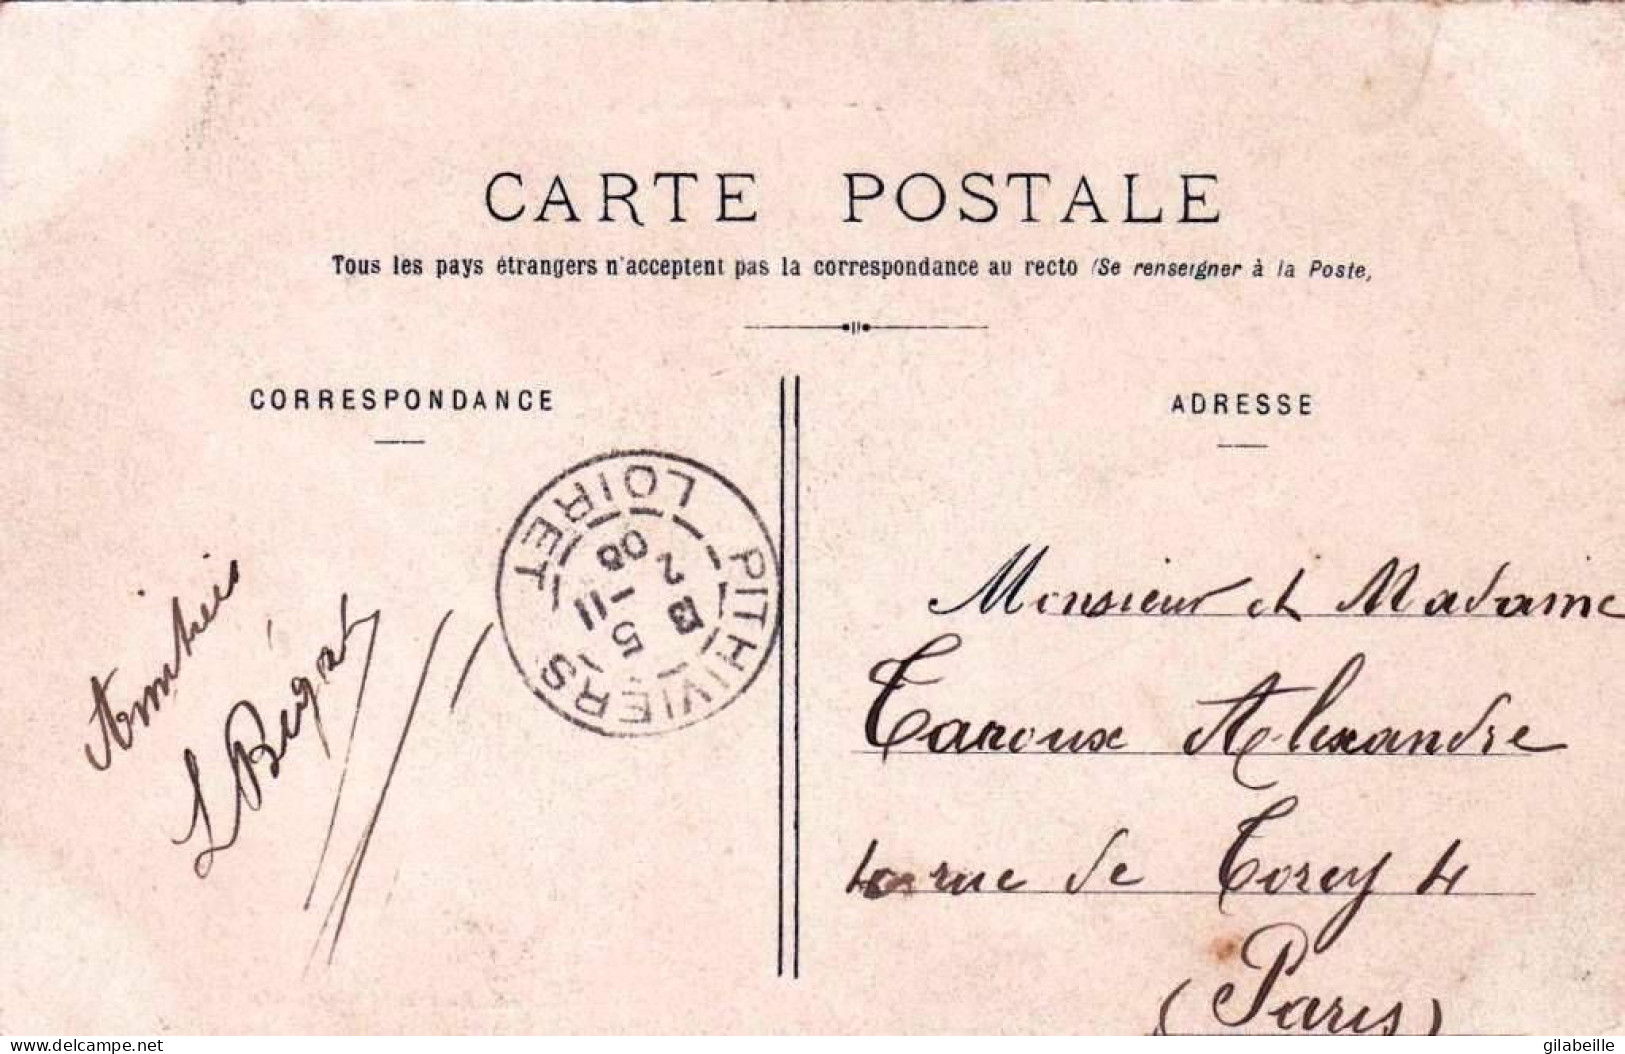 CARTE POSTALE
Tous les pays étrangers n'acceptent pas la correspondance au recto (Se renseigner à la Poste,
CORRESPONDANCE
ADRESSE
PITHIVIERS
LOIRET
B 2
5 - 11
08
Amitiés
L Bigot
Monsieur et Madame
Taroux Alexandre
4 rue de Torcy 4
(Paris)
www.delcampe.net
gilabeille